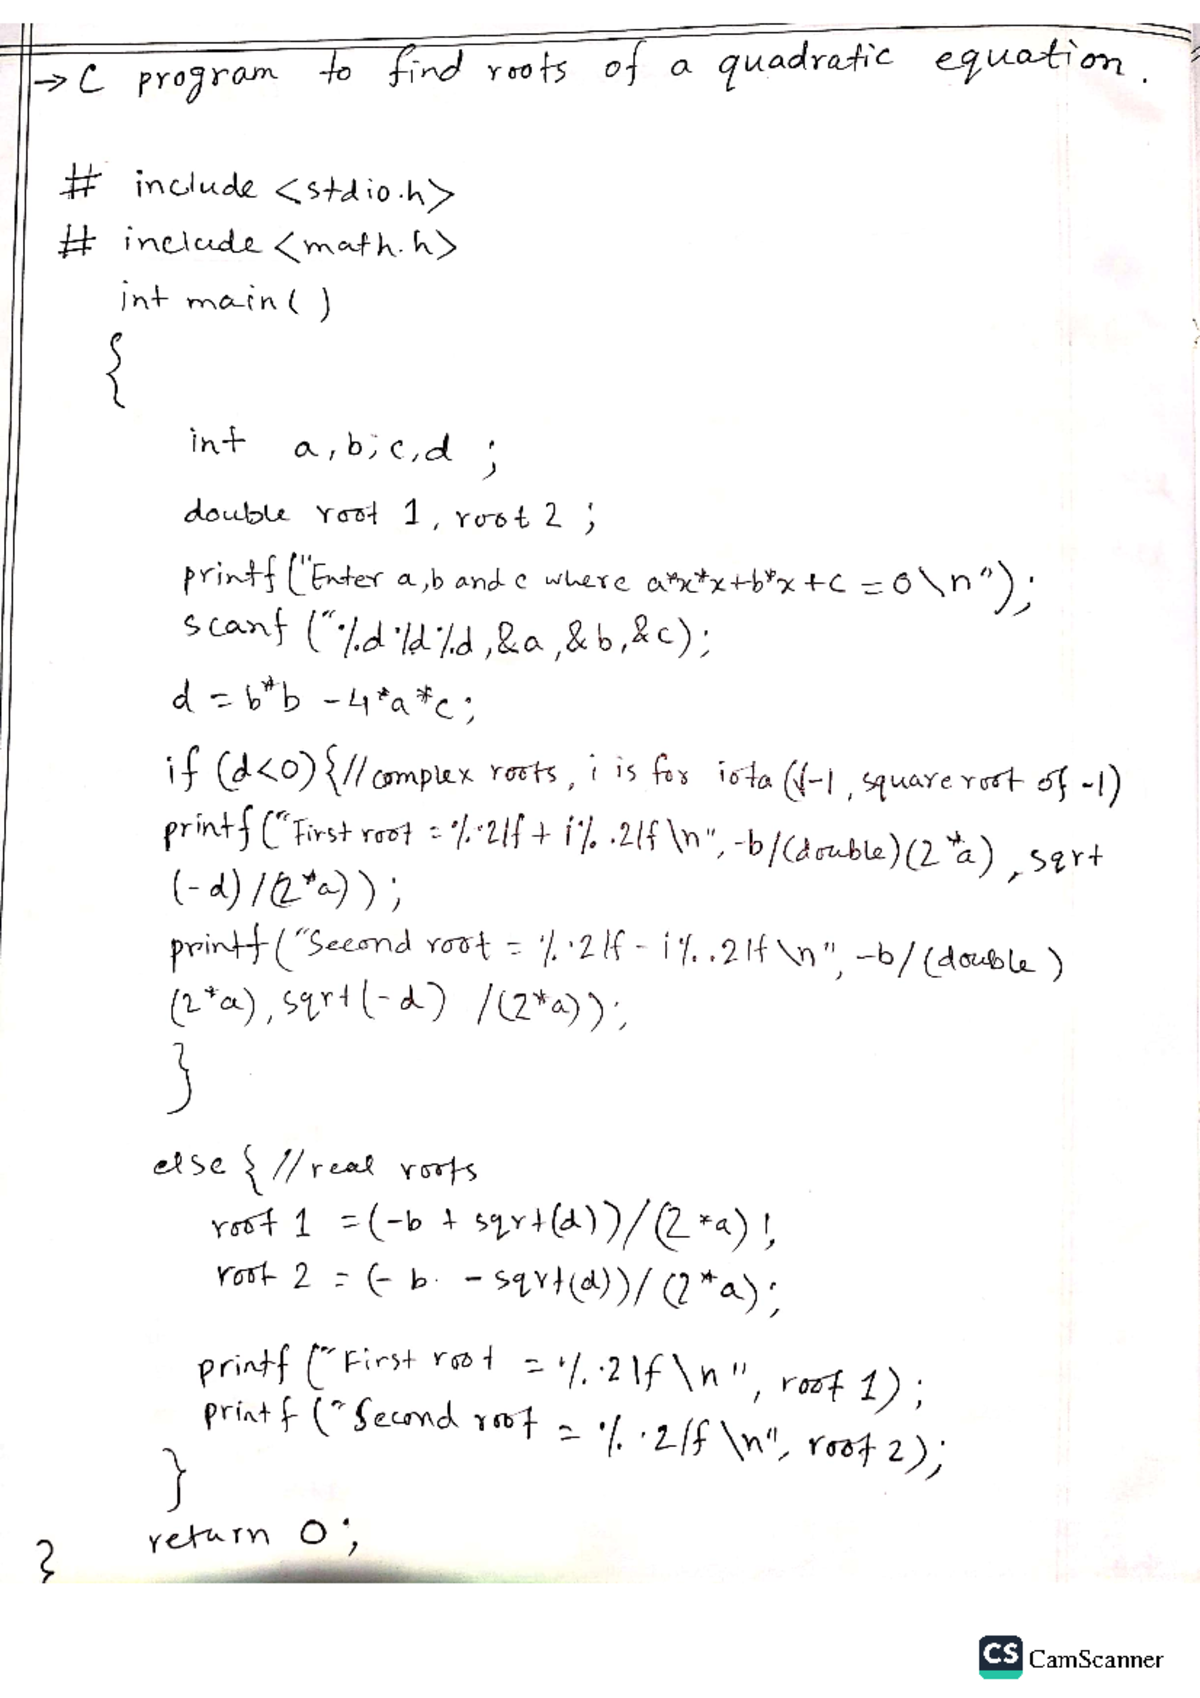 → C program to find roots of a quadratic equation.
# include <stdio.h>
# include <math.h>
int main( )
{
int a, b; c, d ;
double root 1, root 2 ;
printf ("Enter a,b and c where a*x*x+b*x+c = 0\n");
scanf ("%d%d%d,&a,&b,&c);
d = b*b - 4*a*c;
if (d<0){//complex roots, i is for iota (√-1, square root of -1)
printf ("First root = %.2lf + i%.2lf\n", -b/(double)(2*a), sqrt
(-d)/(2*a));
printf ("Second root = %.2lf - i%.2lf\n", -b/(double)
(2*a), sqrt(-d) /(2*a));
}
else { //real roots
root 1 = (-b + sqrt(d))/(2*a);
root 2 = (-b - sqrt(d))/(2*a);
printf ("First root = %.2lf\n", root 1);
printf ("Second root = %.2lf\n", root 2);
}
return 0;
}
CS CamScanner